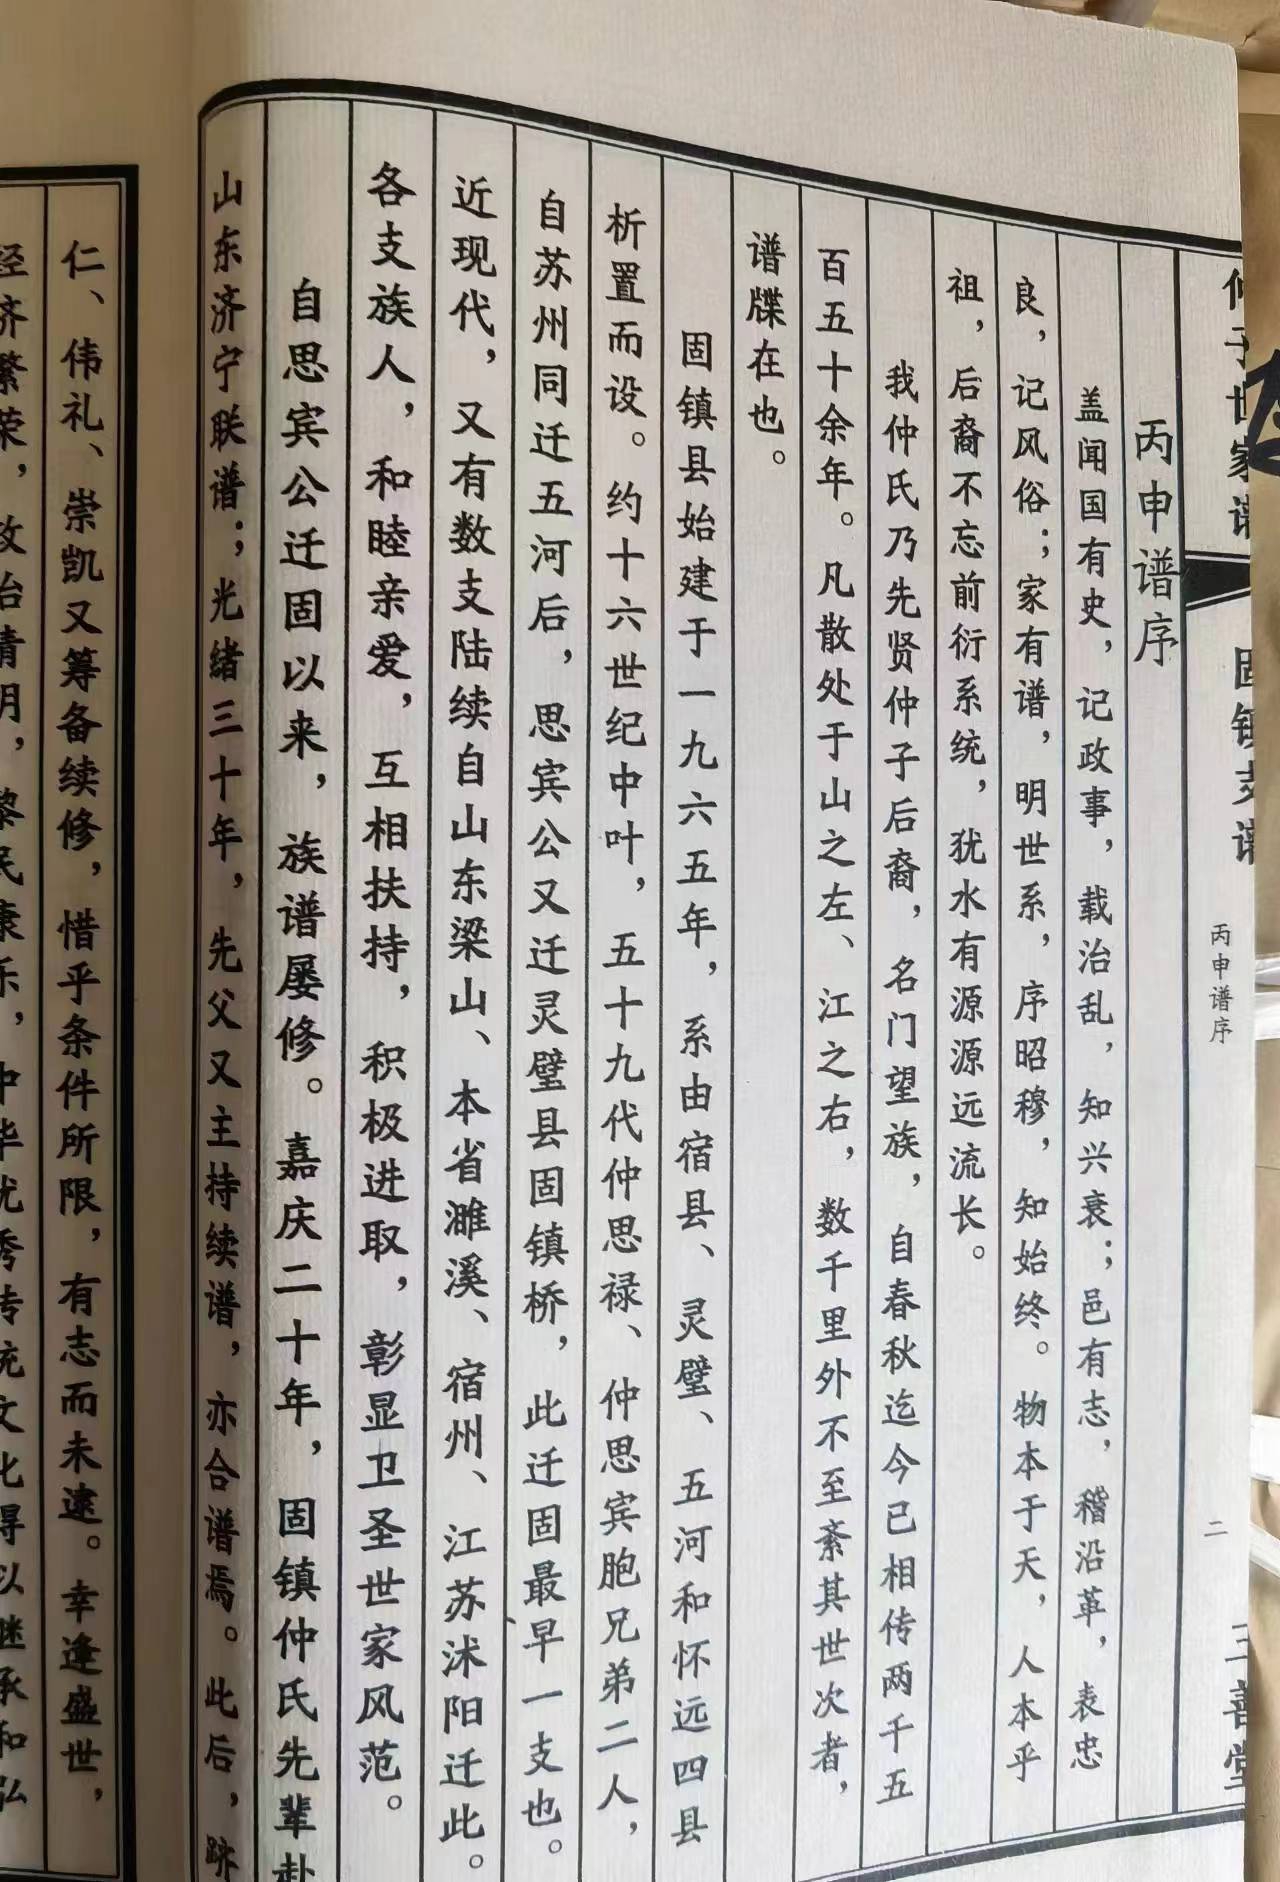 仲子世家谱 固镇支谱 丙申谱序 二 三善堂
丙申谱序
盖闻国有史，记政事，载治乱，知兴衰；邑有志，稽沿革，表忠
良，记风俗；家有谱，明世系，序昭穆，知始终。物本于天，人本乎
祖，后裔不忘前衍系统，犹水有源源远流长。
我仲氏乃先贤仲子后裔，名门望族，自春秋迄今已相传两千五
百五十余年。凡散处于山之左、江之右，数千里外不至紊其世次者，
谱牒在也。
固镇县始建于一九六五年，系由宿县、灵璧、五河和怀远四县
析置而设。约十六世纪中叶，五十九代仲思禄、仲思宾胞兄弟二人，
自苏州同迁五河后，思宾公又迁灵璧县固镇桥，此迁固最早一支也。
近现代，又有数支陆续自山东梁山、本省濉溪、宿州、江苏沭阳迁此。
各支族人，和睦亲爱，互相扶持，积极进取，彰显卫圣世家风范。
自思宾公迁固以来，族谱屡修。嘉庆二十年，固镇仲氏先辈赴
山东济宁联谱；光绪三十年，先父又主持续谱，亦合谱焉。此后，跡
仁、伟礼、崇凯又筹备续修，惜乎条件所限，有志而未逮。幸逢盛世，
经济繁荣，政治清明，黎民康乐，中华优秀传统文化得以继承和弘